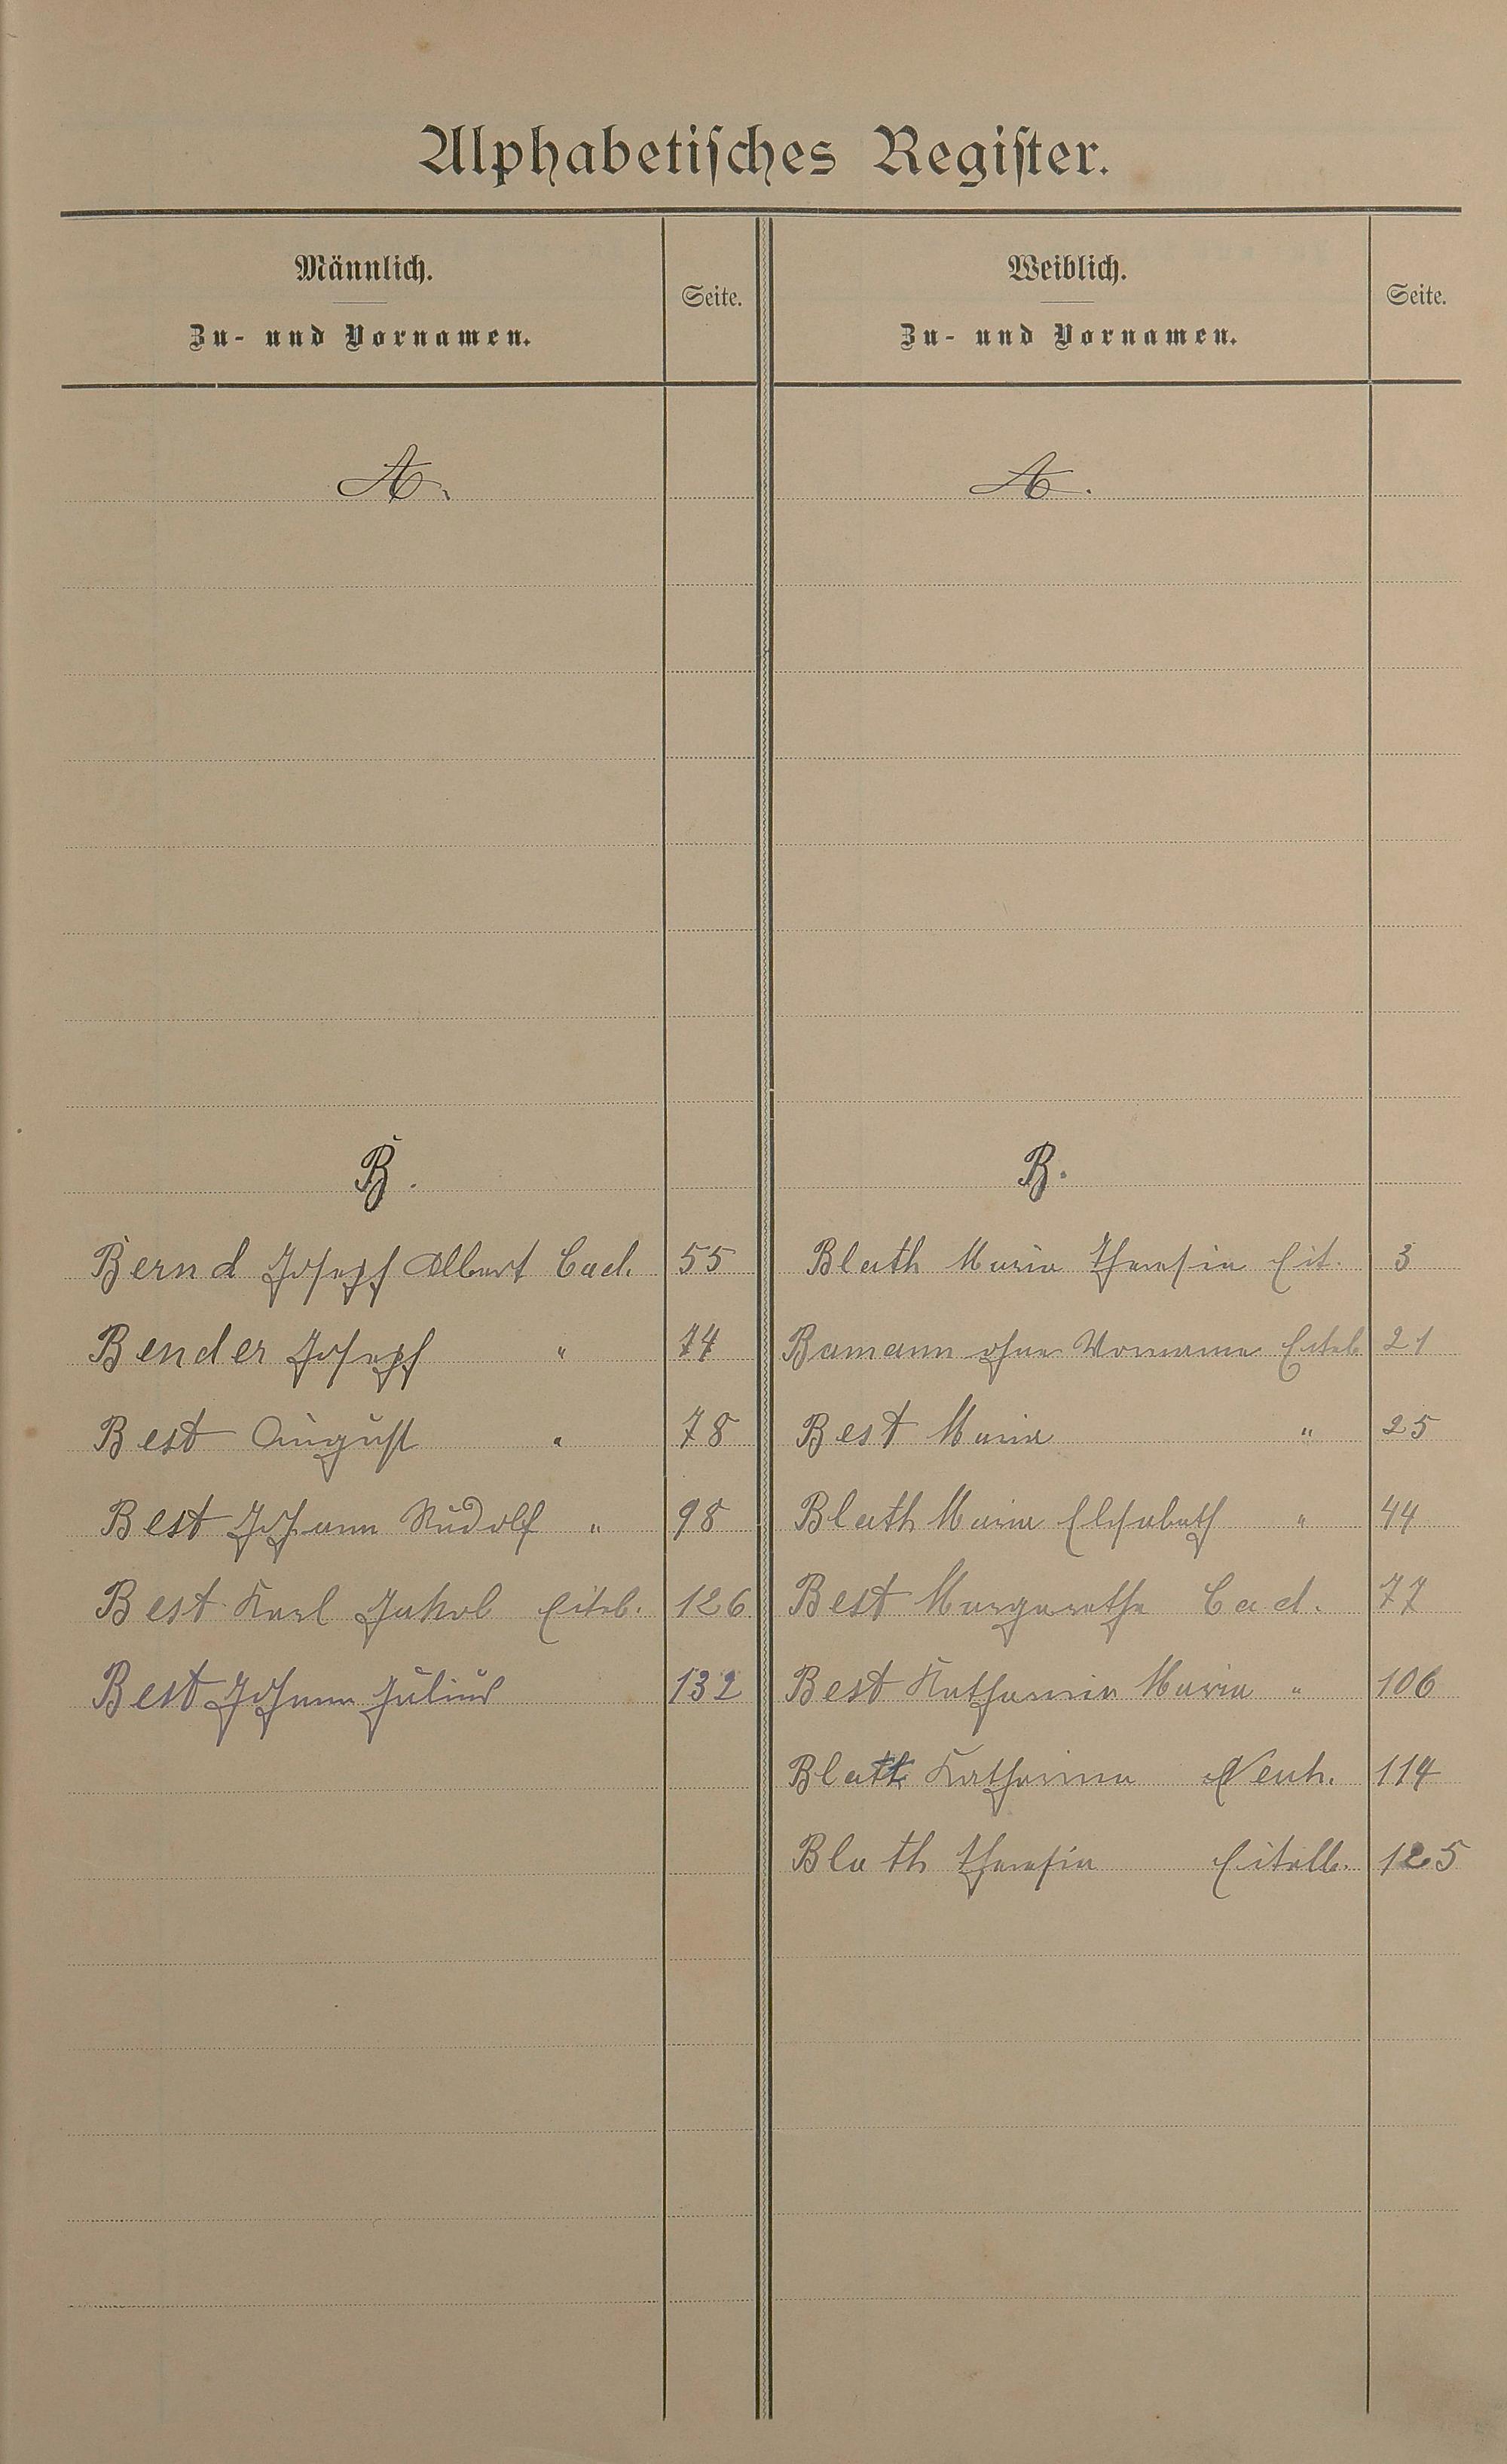 Alphabetisches Register.
Männlich.
Zu- und Vornamen.
Seite.
Weiblich.
Zu- und Vornamen.
Seite.
A.
A.
B.
B.
Bernd Joseph Albert Cad. 55
Blath Maria Theresia Eit. 3
Bender Joseph " 74
Bamann ohne Vorname Eitelb 21
Best August " 78
Best Maria " 25
Best Johann Rudolf " 98
Blath Maria Elisabeth " 44
Best Karl Jakob Eitelb. 126
Best Margaretha Cad. 77
Best Johann Julius 132
Best Katharina Maria " 106
Blath Katharina Neuh. 114
Blath Theresia Eitelb. 125